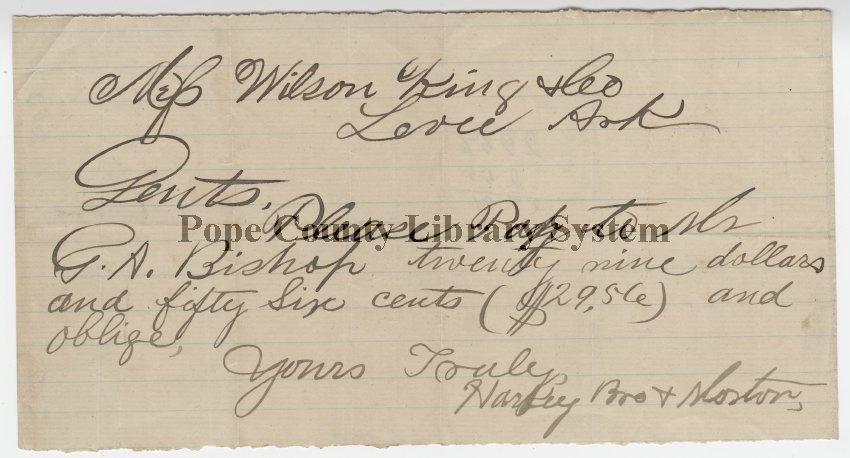 Mess Wilson King & Co
Levee Ark
Gents,
Please Pay to Mr
Pope County Library System
G. A. Bishop twenty nine dollars
and fifty Six cents ($29,56) and
oblige,
Yours Truly
Harkey Bro & Morton,